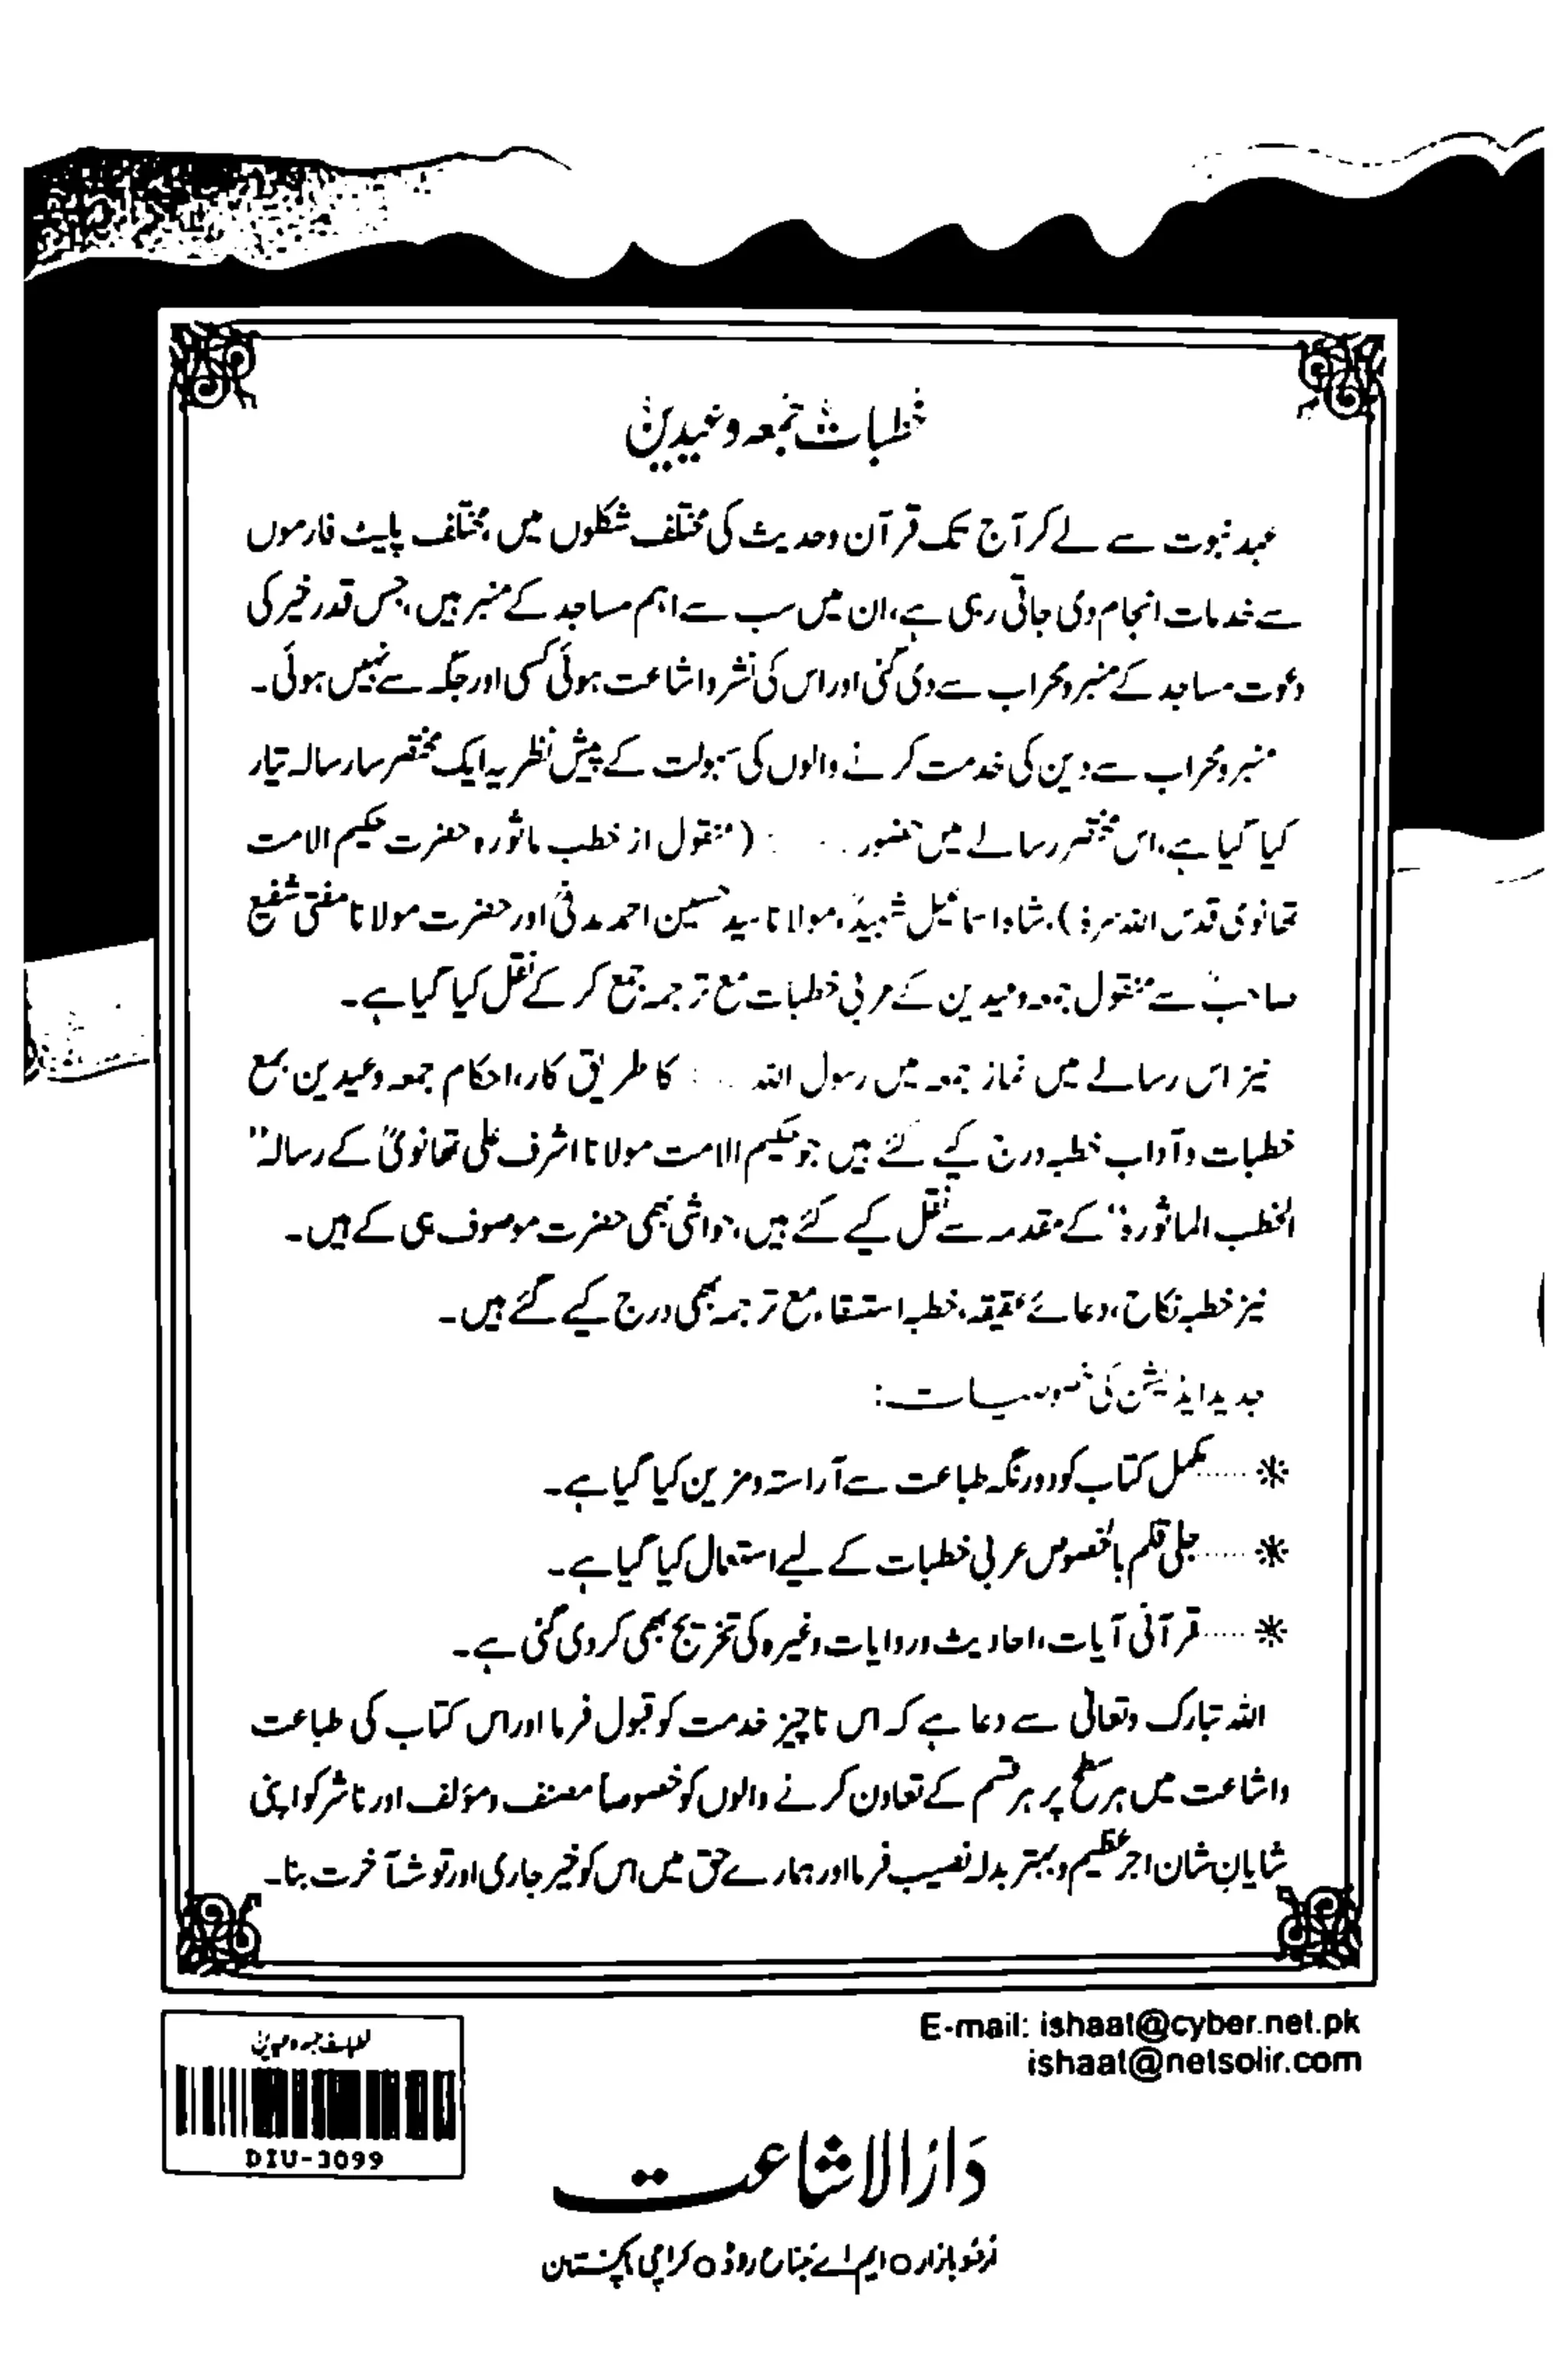 خطبات جمعہ و عیدین
عہد نبوت سے لے کر آج تک قرآن وحدیث کی مختلف شکلوں میں، مختلف پلیٹ فارموں
سے خدمات انجام دی جاتی رہی ہے، ان میں سب سے اہم مساجد کے منبر ہیں، جس قدر خیر کی
دعوت مساجد کے منبر ومحراب سے دی گئی اور اس کی نشر واشاعت ہوئی کسی اور جگہ سے نہیں ہوئی۔
منبر ومحراب سے دین کی خدمت کرنے والوں کی سہولت کے پیش نظر یہ ایک مختصر سا رسالہ تیار
کیا گیا ہے، اس مختصر رسالے میں حضور (منقول از خطب ماثورہ حضرت حکیم الامت
تھانوی قدس اللہ سرہٗ)، شاہ اسماعیل شہیدؒ، مولانا سید حسین احمد مدنیؒ اور حضرت مولانا مفتی شفیع
صاحبؒ سے منقول جمعہ وعیدین کے عربی خطبات مع ترجمہ جمع کر کے نقل کیا گیا ہے۔
نیز اس رسالے میں نماز جمعہ میں رسول اللہ کا طریق کار، احکام جمعہ وعیدین بمع
خطبات وآداب خطبہ درج کیے گئے ہیں جو حکیم الامت مولانا اشرف علی تھانویؒ کے رسالہ "
الخطب الماثورہ" کے مقدمہ سے نقل کیے گئے ہیں، حواشی بھی حضرت موصوف ہی کے ہیں۔
نیز خطبہ نکاح، دعائے عقیقہ، خطبہ استسقاء مع ترجمہ بھی درج کیے گئے ہیں۔
جدید ایڈیشن کی خصوصیات:
* ..... مکمل کتاب کو دو رنگہ طباعت سے آراستہ ومزین کیا گیا ہے۔
* ..... جلی قلم بالخصوص عربی خطبات کے لیے استعمال کیا گیا ہے۔
* ..... قرآنی آیات، احادیث وروایات وغیرہ کی تخریج بھی کر دی گئی ہے۔
اللہ تبارک وتعالیٰ سے دعا ہے کہ اس ناچیز خدمت کو قبول فرما اور اس کتاب کی طباعت
واشاعت میں ہر سطح پر ہر قسم کے تعاون کرنے والوں کو خصوصاً مصنف ومؤلف اور ناشر کو اپنی
شایانِ شان اجر عظیم وبہتر بدلہ نصیب فرما اور ہمارے حق میں اس کو خیر جاری اور توشۂ آخرت بنا۔
E-mail: ishaat@cyber.net.pk
ishaat@netsolir.com
DIU-3099
دَارُالاشاعت
اُردو بازار ○ ایم اے جناح روڈ ○ کراچی پاکستان